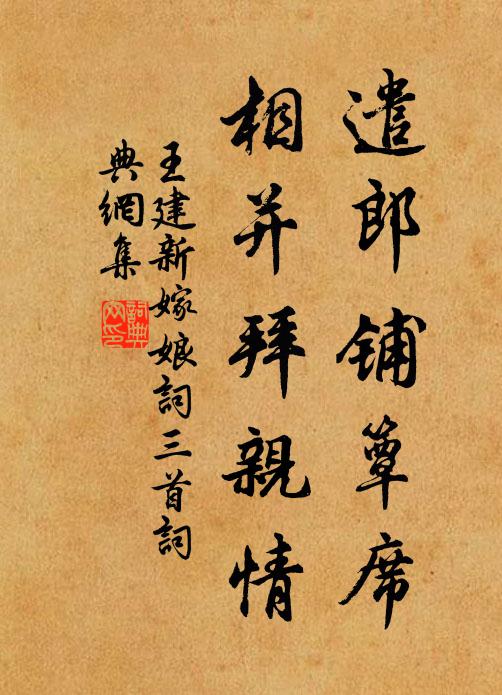 遣郎铺簟席
相并拜親情
王建新嫁娘詞三首詞
典網集
詞典網印